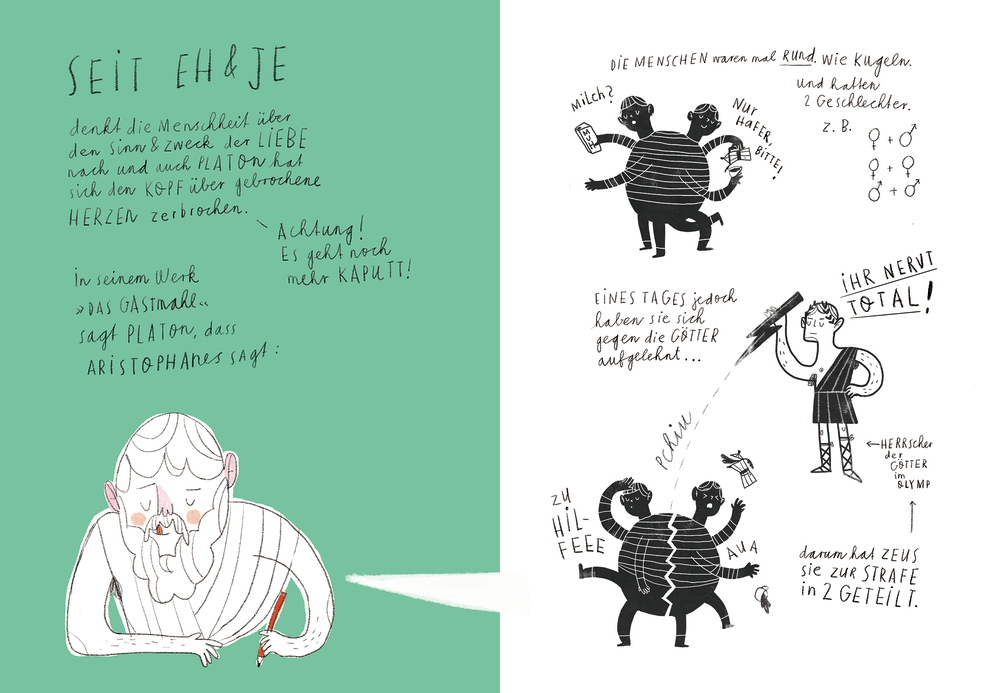 SEIT EH & JE
denkt die Menschheit über
den Sinn & Zweck der LIEBE
nach und auch PLATON hat
sich den KOPF über gebrochene
HERZEN zerbrochen.
Achtung!
Es geht noch
mehr KAPUTT!
in seinem Werk
»DAS GASTMAHL«
sagt PLATON, dass
ARISTOPHANES sagt:
DIE MENSCHEN waren mal RUND. Wie Kugeln.
und hatten
2 Geschlechter.
z. B.
♀ + ♂
♀ + ♀
♂ + ♂
MILCH?
MUH
NUR
HAFER,
BITTE!
EINES TAGES jedoch
haben sie sich
gegen die GÖTTER
aufgelehnt...
IHR NERVT
TOTAL!
PCHIU
← HERRscher
der
GÖTTER
im
OLYMP
ZU
HIL-
FEEE
AUA
darum hat ZEUS
sie ZUR STRAFE
in 2 GETEILT.